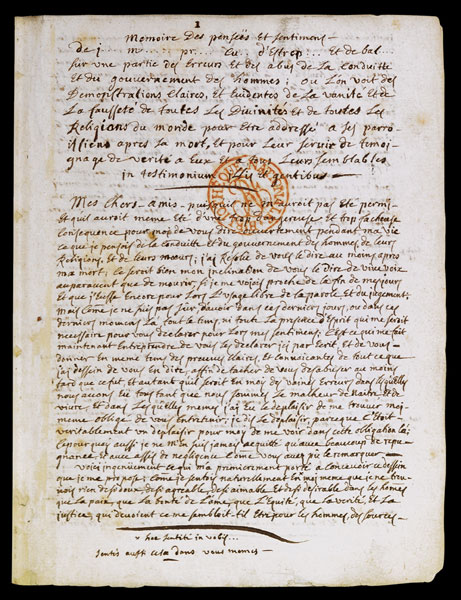 1
Memoire Des pensées Et sentimens
de j..... m..... pr... cu... d'Estrep.... Et de bal...
sur une partie des Erreurs Et des abus de La Conduitte
Et du gouvernement des hommes; ou L'on voit des
Demonstrations Claires, et Evidentes de La vanité Et de
La fausseté de toutes Les Divinités et de toutes Les
Religions du monde pour etre addressé a ses parro-
issiens apres sa mort, et pour Leur servir de temoi-
gnage de verité a Eux et a tous Leurs semblables
in testimonium illis et gentibus
Mes chers amis puis qu'il ne m'auroit pas eté permis
Et qu'il auroit meme eté d'une trop dangereuse et trop facheuse
Consequence pour moy de vous dire ouvertement pendant ma vie
ce que je pensois de la conduite et du gouvernement des hommes de leurs
Religions, et de leurs mœurs; j'ai Resolu de vous le dire au moins apres
ma mort; ce seroit bien mon inclination de vous le dire de vive voix
auparavant que de mourir, si je me voiois proche de la fin de mes jours
Et que j'eusse Encore pour Lors L'usage libre de la parole Et du jugement;
Mais come je ne suis pas sur d'avoir dans ces derniers jours, ou dans ces
derniers momens La tout le tems, ni toute La presence d'Esprit qui me seroit
necessaire pour vous declarer pour Lors mes sentimens; C'est ce qui me fait
maintenant Entreprendre de vous les declarer ici par Ecrit, Et de vous
donner En meme tems des preuves claires, Et convaincantes de tout ce que
j'ai dessein de vous En dire, affin de tacher de vous desabuser au moins
tard que ce fut, Et autant qu'il seroit En moy des vaines Erreurs dans lesquelles
nous avons Eu tous tant que nous sommes Le malheur de Naitre et de
vivre, et dans Lesquelles memes j'ai Eu le deplaisir de me trouver moi-
meme obligé de vous Entretenir; je dis Le deplaisir, parceque C'Etoit
veritablement un deplaisir pour moy de me voir dans cette obligation là;
C'est pourquoi aussi je ne m'En suis jamais acquitté qu'avec beaucoup de repu-
gnance et avec assés de negligence Come vous avés pu le remarquer
Voici ingenuement ce qui m'a premierement porté a concevoir ce dessein
que je me propose; Come je sentois naturellement En moi meme que je ne trou-
vois rien de si doux, de si agreable, de si aimable Et de si desirable dans les homes
que La paix, que La bonté de L'ame, que L'Equité, que La verité et La
justice, qui devoient ce me sembloit-il etre pour les hommes, des sources
v hoc sentite in vobis...
sentés aussi cela dans vous memes